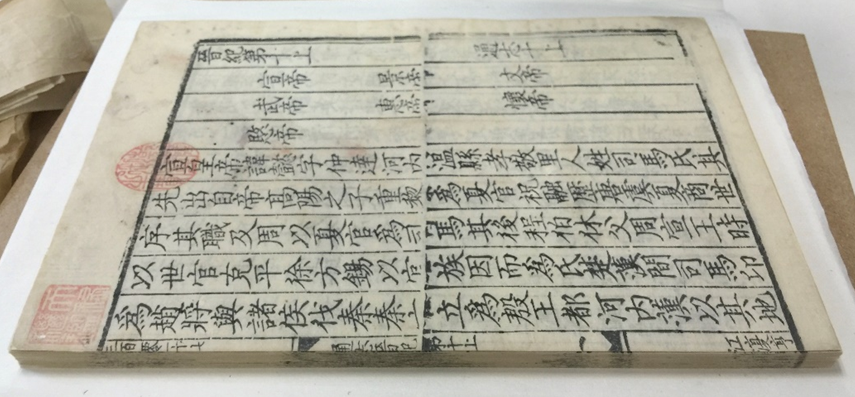 晉紀第十上 通志十上
宣帝 景帝 文帝
武帝 惠帝 懷帝
愍帝
宣皇帝諱懿字仲達河內溫縣孝敬里人姓司馬氏其
先出自帝高陽之子重黎為夏官祝融歷唐虞夏商世
序其職及周以夏官為司馬其後程柏休父周宣王時
以世官克平徐方錫以官族因而為氏楚漢間司馬卬
為趙將與諸侯伐秦秦亡立為殷王都河內漢以其地
第十上